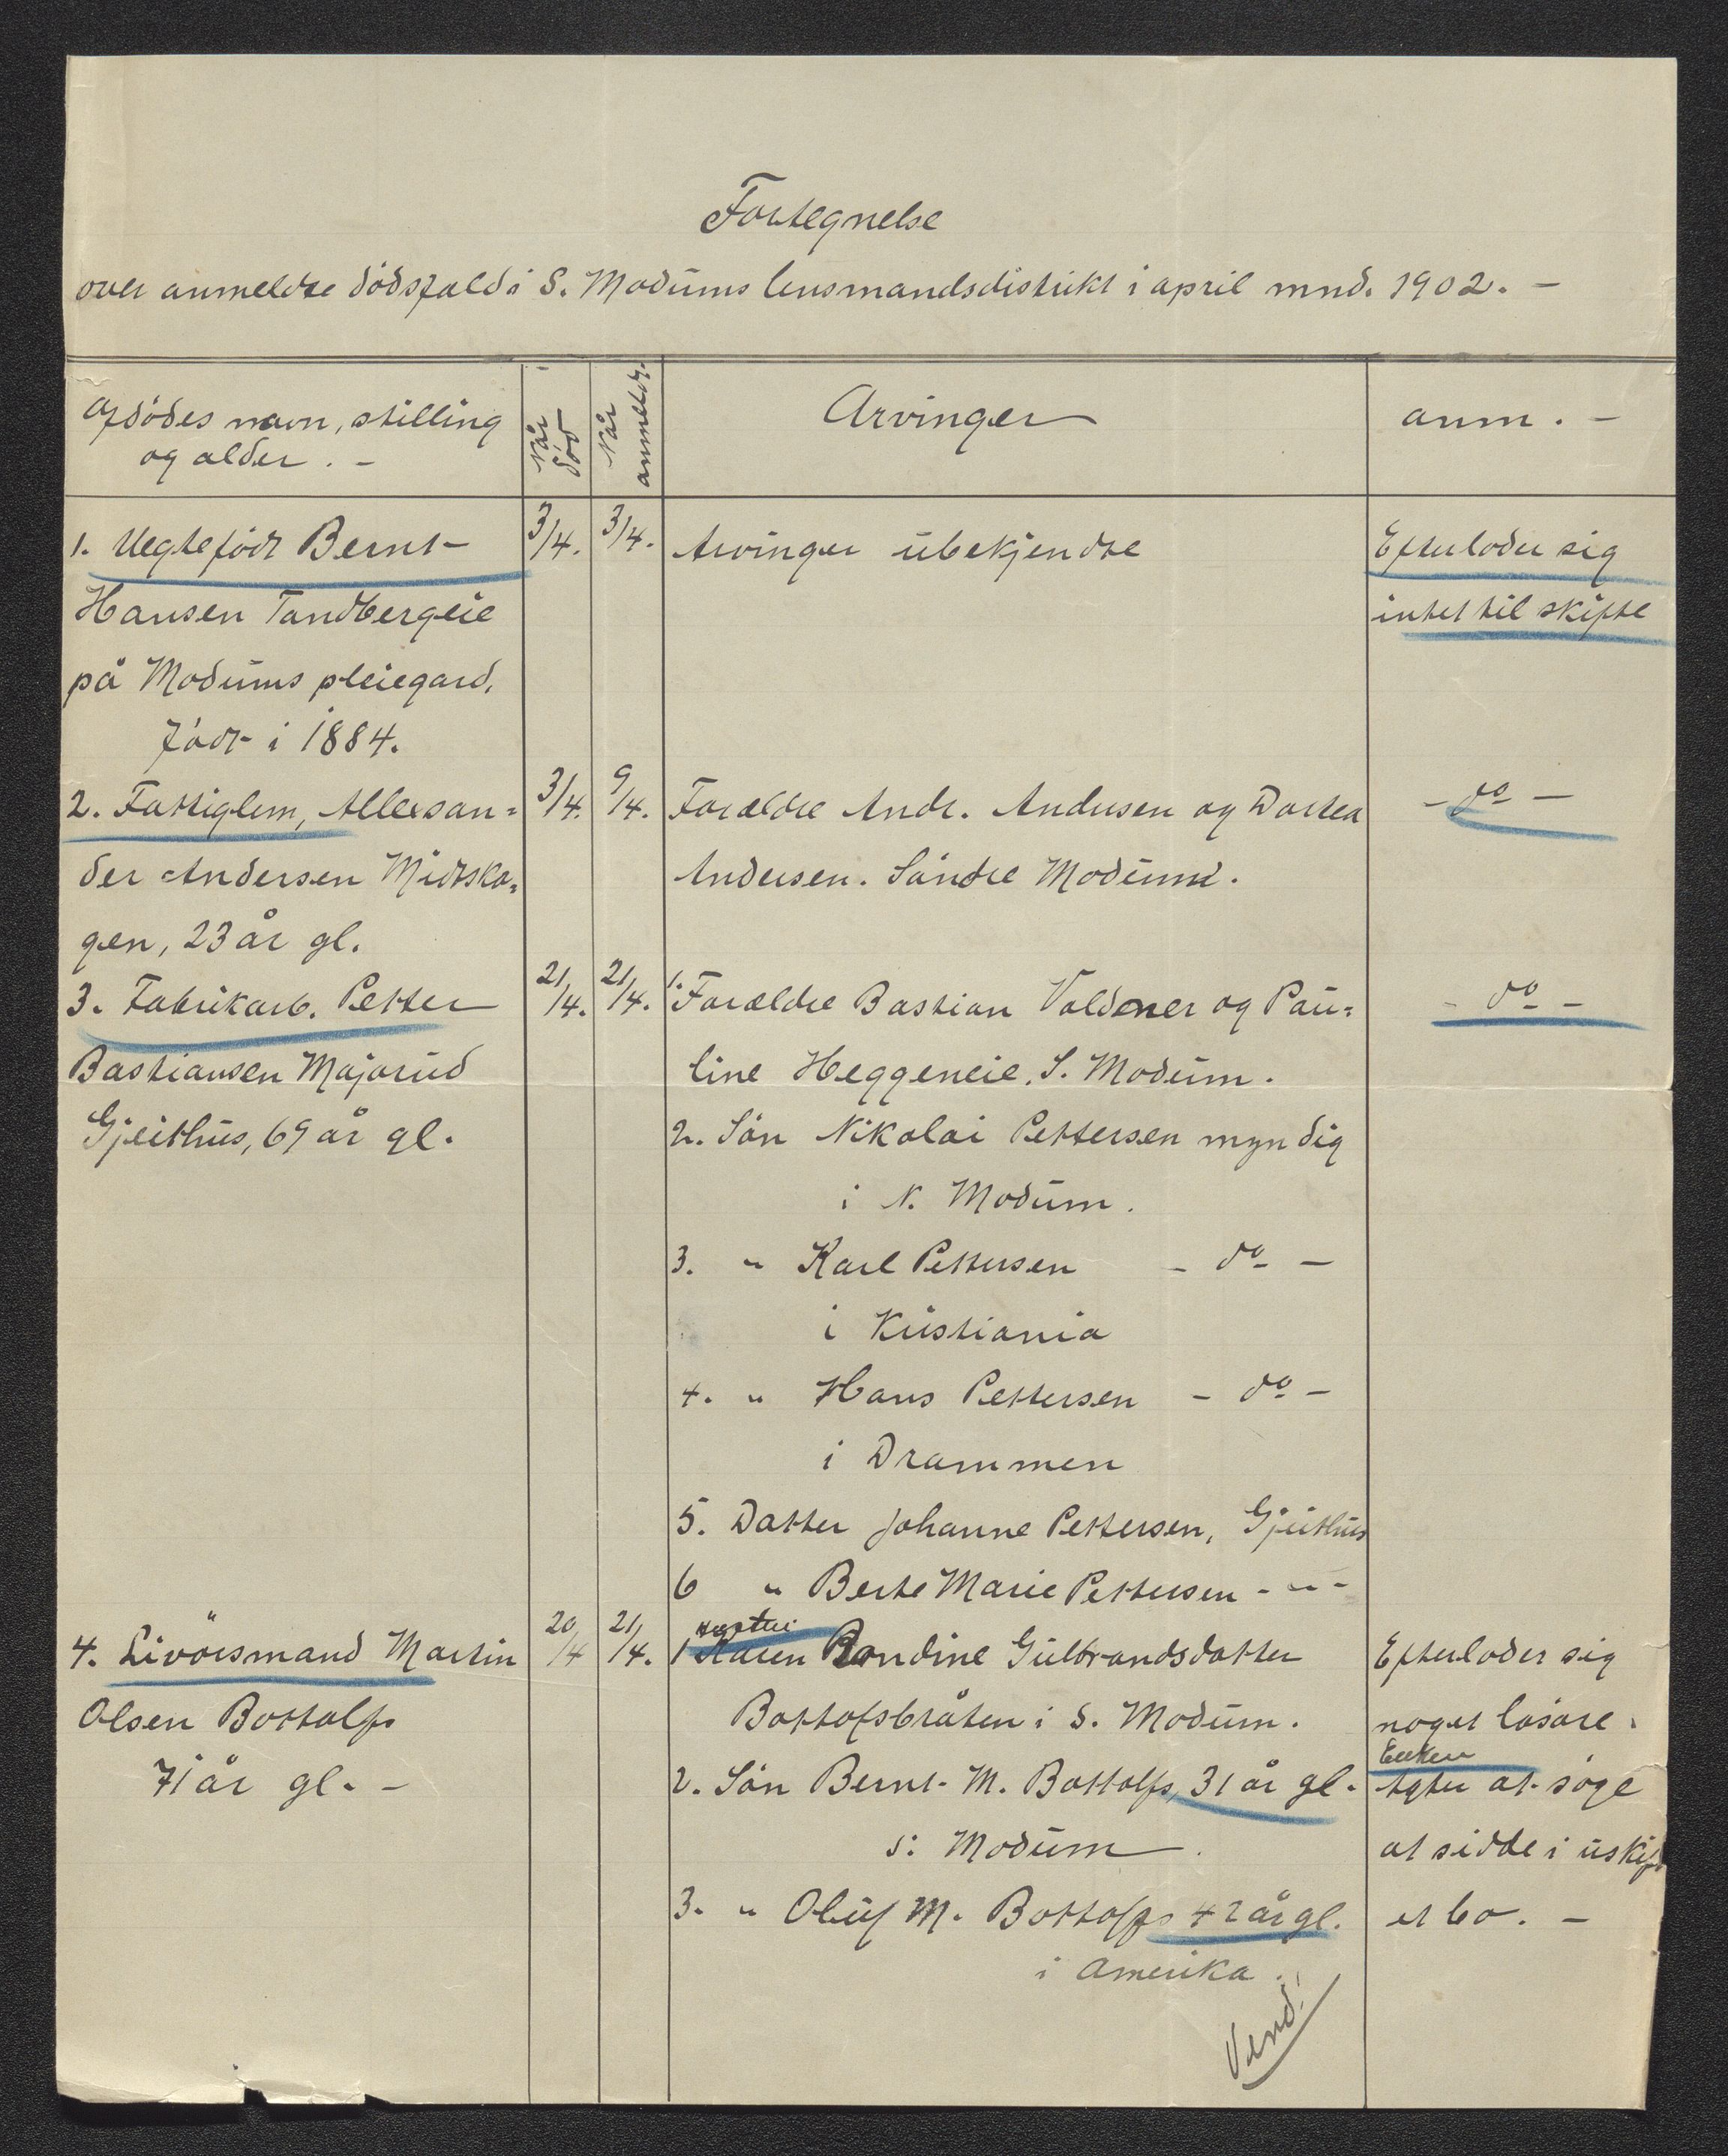 Fortegnelse
over anmeldte dödsfald i S. Modums lensmandsdistrikt i april mnd. 1902. —
Afdödes navn, stilling
og alder. —
Når
död
Når
anmeldt.
Arvinger
anm. —
1. Uegtefödt Bernt
Hansen Tandbergeie
på Modums pleiegard,
födt i 1884.
3/4. 3/4.
Arvinger ubekjendte
Efterlader sig
intet til skifte
2. Fattiglem, Allexsan=
der Andersen Midtsko=
gen, 23 år gl.
3/4. 9/4.
Forældre Andr. Andersen og Dortea
Andersen. Söndre Modum.
— do —
3. Fabrikarb. Petter
Bastiansen Majorud
Gjeithus, 69 år gl.
21/4. 21/4.
1. Forældre Bastian Valdener og Pau=
line Heggeneie, S. Modum.
2. Sön Nikolai Pettersen myndig
i N. Modum.
3. " Karl Pettersen — do —
i Kristiania
4. " Hans Pettersen — do —
i Drammen
5. Datter Johanne Pettersen, Gjeithus
6 " Berte Marie Pettersen - " -
— do —
4. Livörsmand Martin
Olsen Bottolfs
71 år gl. —
20/4 21/4.
1 Karen Randine Gulbrandsdatter
Bottofsbråten i S. Modum.
2. Sön Bernt M. Bottolfs, 31 år gl.
S. Modum.
3. " Oluf M. Bottolfs 42 år gl.
i Amerika.
Efterlader sig
noget lösöre.
Enken
agter at söge
at sidde i uskift
et bo. —
Vend!